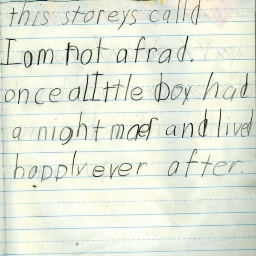 this storeys calld
I am not afrad.
once alittle boy had
a night maer and lived
happly ever after.